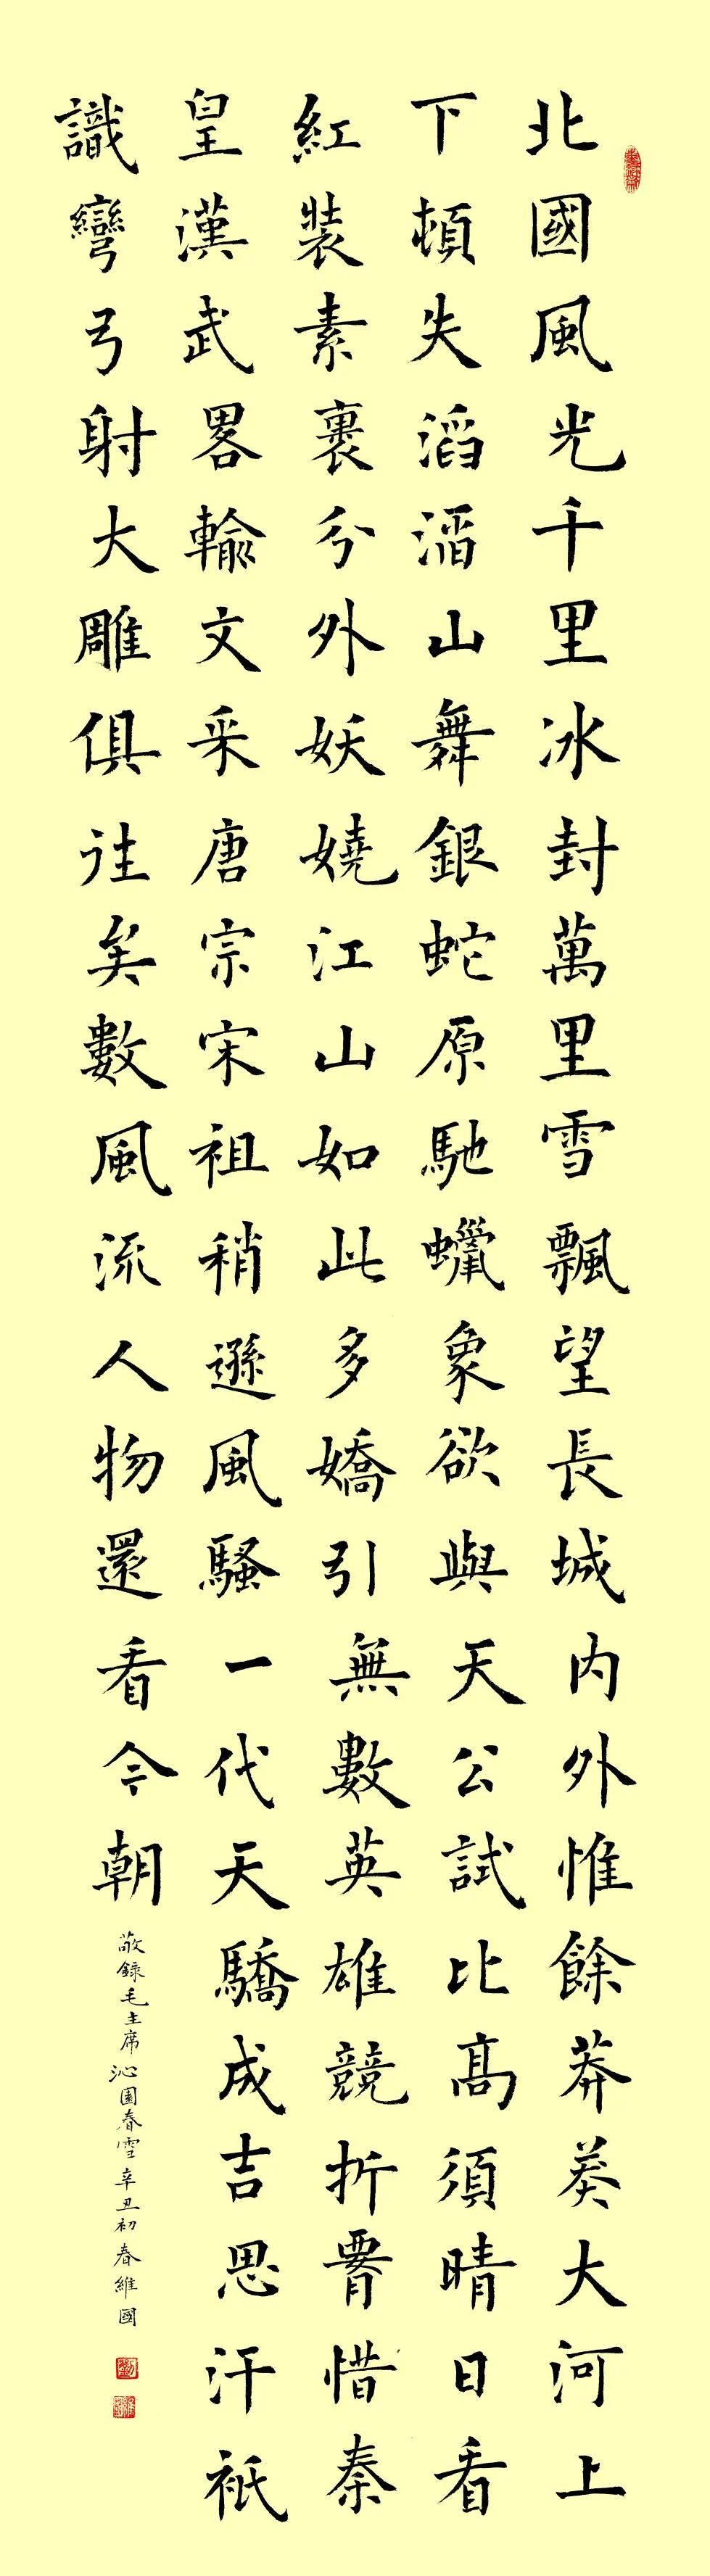 北國風光千里冰封萬里雪飄望長城內外惟餘莽莽大河上
下頓失滔滔山舞銀蛇原馳蠟象欲與天公試比高須晴日看
紅裝素裹分外妖嬈江山如此多嬌引無數英雄競折腰惜秦
皇漢武畧輸文采唐宗宋祖稍遜風騷一代天驕成吉思汗祇
識彎弓射大雕俱往矣數風流人物還看今朝
敬錄毛主席沁園春雪辛丑初春維國